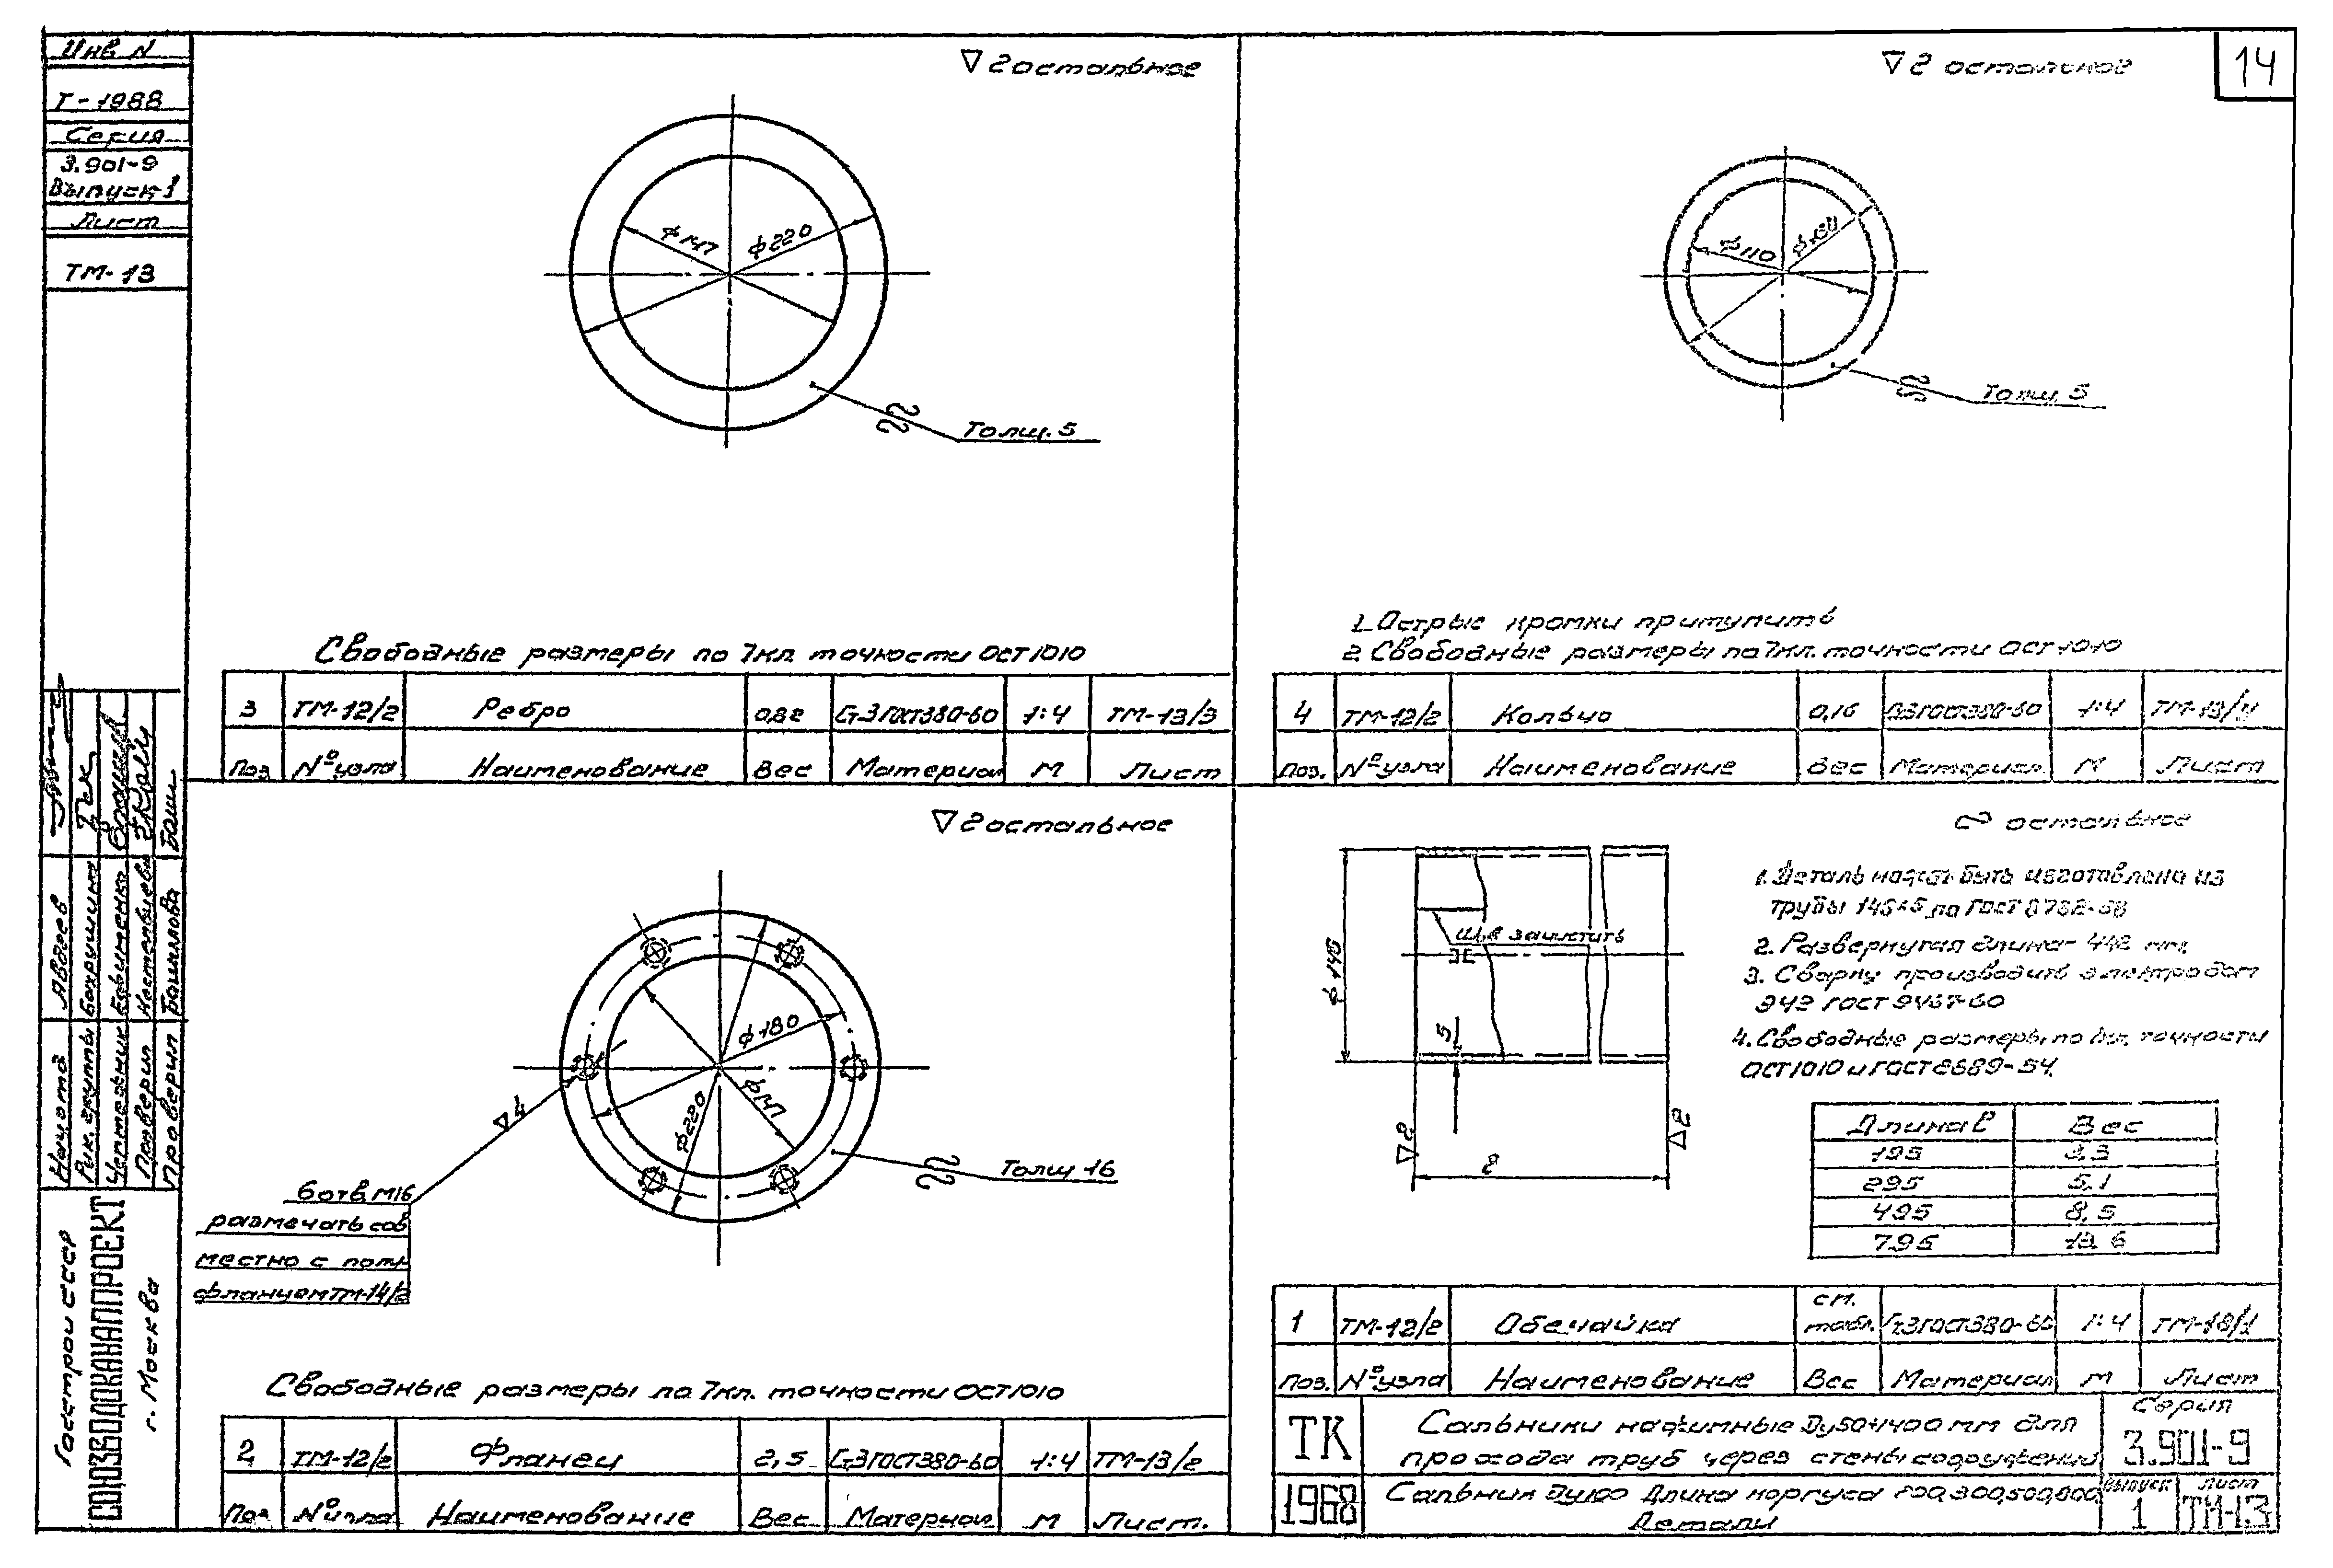 Инв N
Т-1988
Серия
3.901-9
Выпуск 1
Лист
ТМ-13
14
▽2 остальное
ф147
ф220
Толщ. 5
Свободные размеры по 7кл. точности ОСТ1010
3 ТМ-12/2 Ребро 0,82 Ст.3 ГОСТ380-60 1:4 ТМ-13/3
Поз. №узла Наименование Вес Материал М Лист
▽2 остальное
ф110
Толщ. 5
1. Острые кромки притупить
2. Свободные размеры по 7кл. точности ОСТ1010
4 ТМ-12/2 Кольцо 0,16 Ст.3 ГОСТ380-60 1:4 ТМ-13/4
Поз. №узла Наименование Вес Материал М Лист
▽2 остальное
ф180
ф147
ф220
▽4
Толщ 16
6 отв. М16
размечать сов
местно с
фланцем ТМ-14/2
Свободные размеры по 7кл. точности ОСТ1010
2 ТМ-12/2 Фланец 2,5 Ст.3 ГОСТ380-60 1:4 ТМ-13/2
Поз. №узла Наименование Вес Материал М Лист.
остальное
Шов зачистить
ф146
5
▽2
▽2
ℓ
1. Деталь может быть изготовлена из
трубы 146×5 по ГОСТ 8732-58
2. Развернутая длина- 442 мм.
3. Сварку производить электродом
Э42 ГОСТ 9467-60
4. Свободные размеры по 7кл. точности
ОСТ1010 и ГОСТ2689-54.
Длина ℓ Вес
195 3,3
295 5,1
495 8,5
795 13,6
1 ТМ-12/2 Обечайка см. табл. Ст.3 ГОСТ380-60 1:4 ТМ-13/1
Поз. №узла Наименование Вес Материал М Лист
ТК Сальники нажимные Ду50÷1400 мм для
прохода труб через стены сооружений
Серия
3.901-9
1968 Сальник Ду100 Длина корпуса 200,300,500,800.
Детали
Выпуск 1
Лист ТМ-13
Госстрой СССР
СОЮЗВОДОКАНАЛПРОЕКТ
г. Москва
Нач. отд Авдеев
Рук. группы Бахрушина
Чертежник Ефименко
Проверил
Проверил Башилова